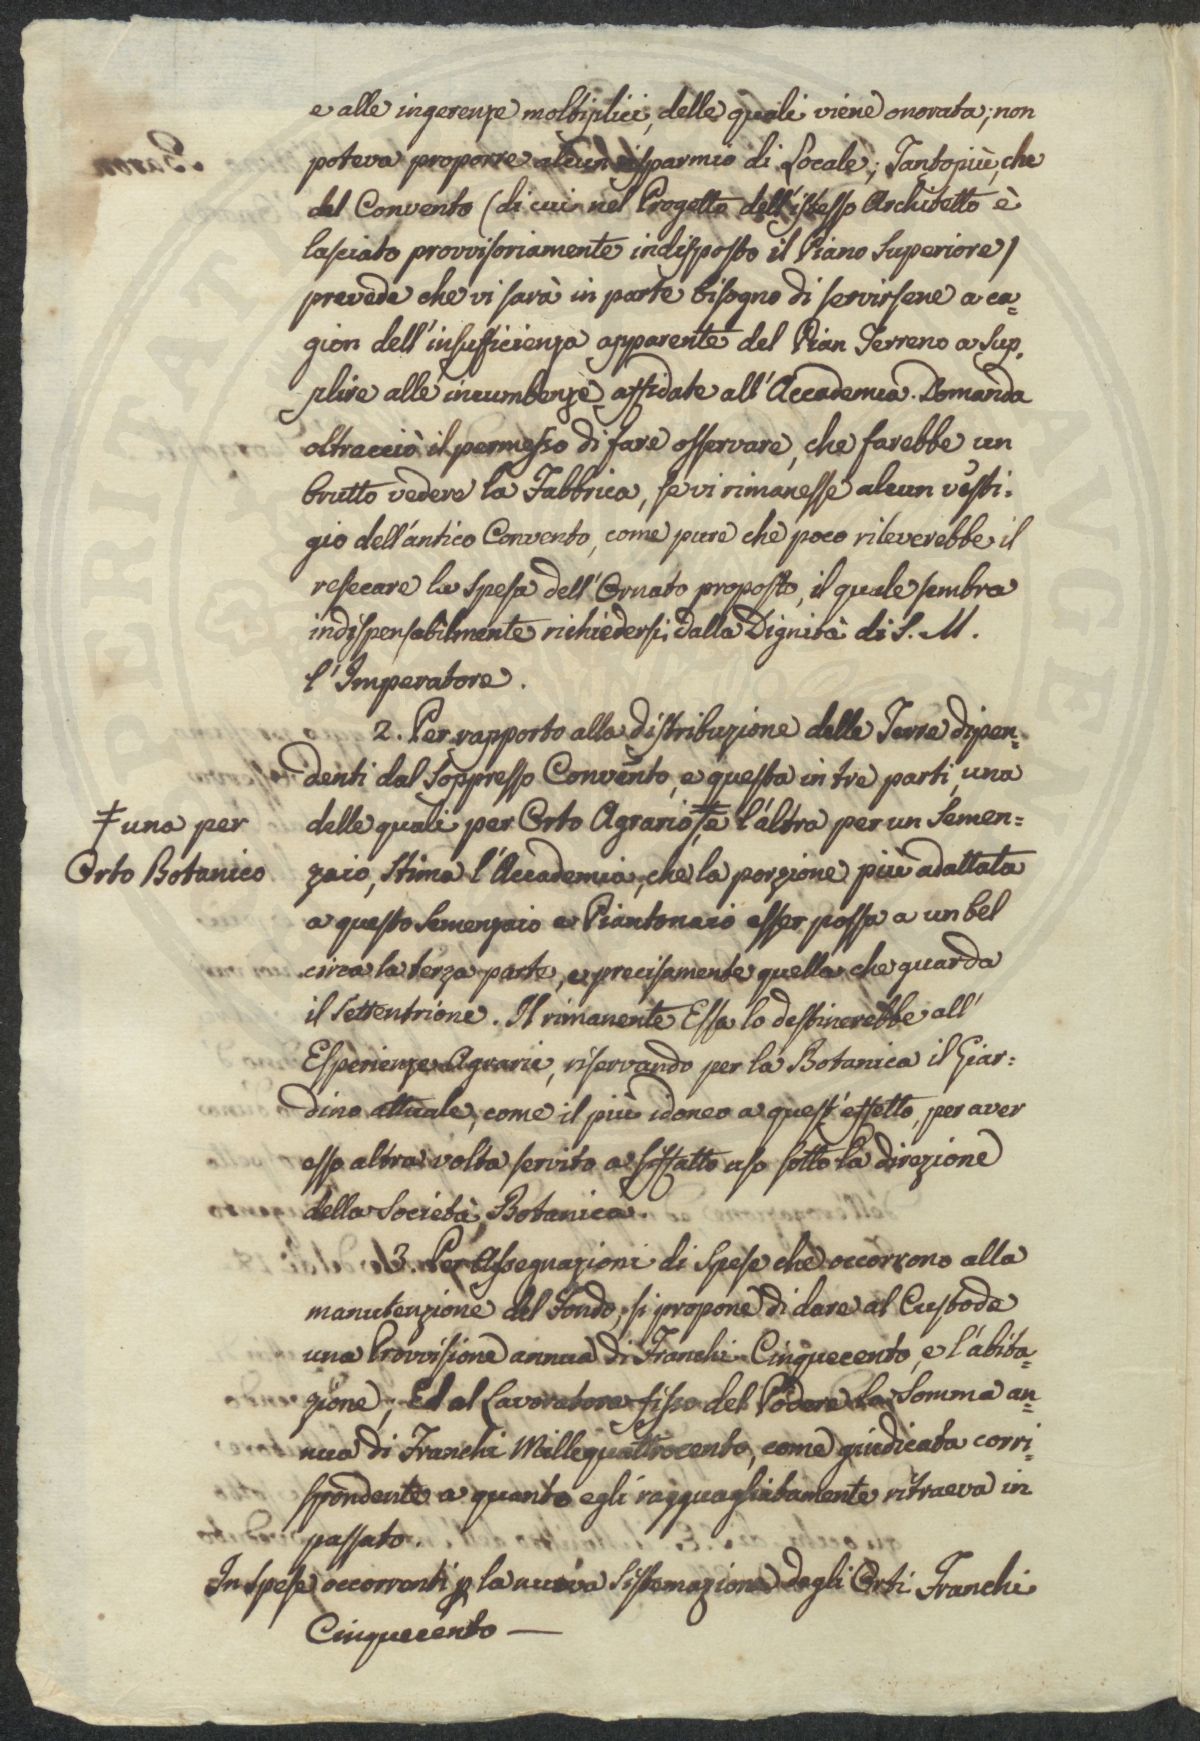 e alle ingerenze moltiplici, delle quali viene onorata; non
poteva proporre alcun risparmio di Locale; Tantopiù, che
del Convento (di cui nel Progetto dell'istesso Architetto è
lasciato provvisoriamente indisposto il Piano Superiore)
prevede che vi sarà in parte bisogno di servirsene a ca=
gion dell'insufficienza apparente del Pian Terreno a Sup=
plire alle incumbenze affidate all'Accademia. Domanda
oltracciò il permesso di fare osservare, che farebbe un
brutto vedere la Fabbrica, se vi rimanesse alcun vesti=
gio dell'antico Convento, come pure che poco rileverebbe il
resecare la Spesa dell'Ornato proposto, il quale sembra
indispensabilmente richiedersi dalla Dignità di S. M.
l'Imperatore.
2. Per rapporto alla distribuzione delle Terre dipen=
denti dal Soppresso Convento, e questa in tre parti, una
delle quali per Orto Agrario ‡ e l'altra per un Semen=
‡ una per
Orto Botanico
zaio, Stima l'Accademia, che la porzione più adattata
a questo Semenzaio e Piantonaio esser possa a un bel
circa la terza parte, e precisamente quella che guarda
il Settentrione. Il rimanente Essa lo destinerebbe all'
Esperienze Agrarie, riservando per la Botanica il Giar=
dino attuale, come il più idoneo a quest'effetto, per aver
esso altra volta servito a siffatto uso sotto la direzione
della Società Botanica.
3. Per Assegnazioni di Spese che occorrono alla
manutenzione del Fondo, si propone di dare al Custode
una Provvisione annua di Franchi Cinquecento, e l'abita=
zione; Ed al Lavoratore fisso del Podere la Somma an=
nua di Franchi Millequattrocento, come giudicata corri=
spondente a quanto egli ragguagliatamente ritraeva in
passato.
In Spese occorrenti p la nuova Sistemazione degli Orti Franchi
Cinquecento —